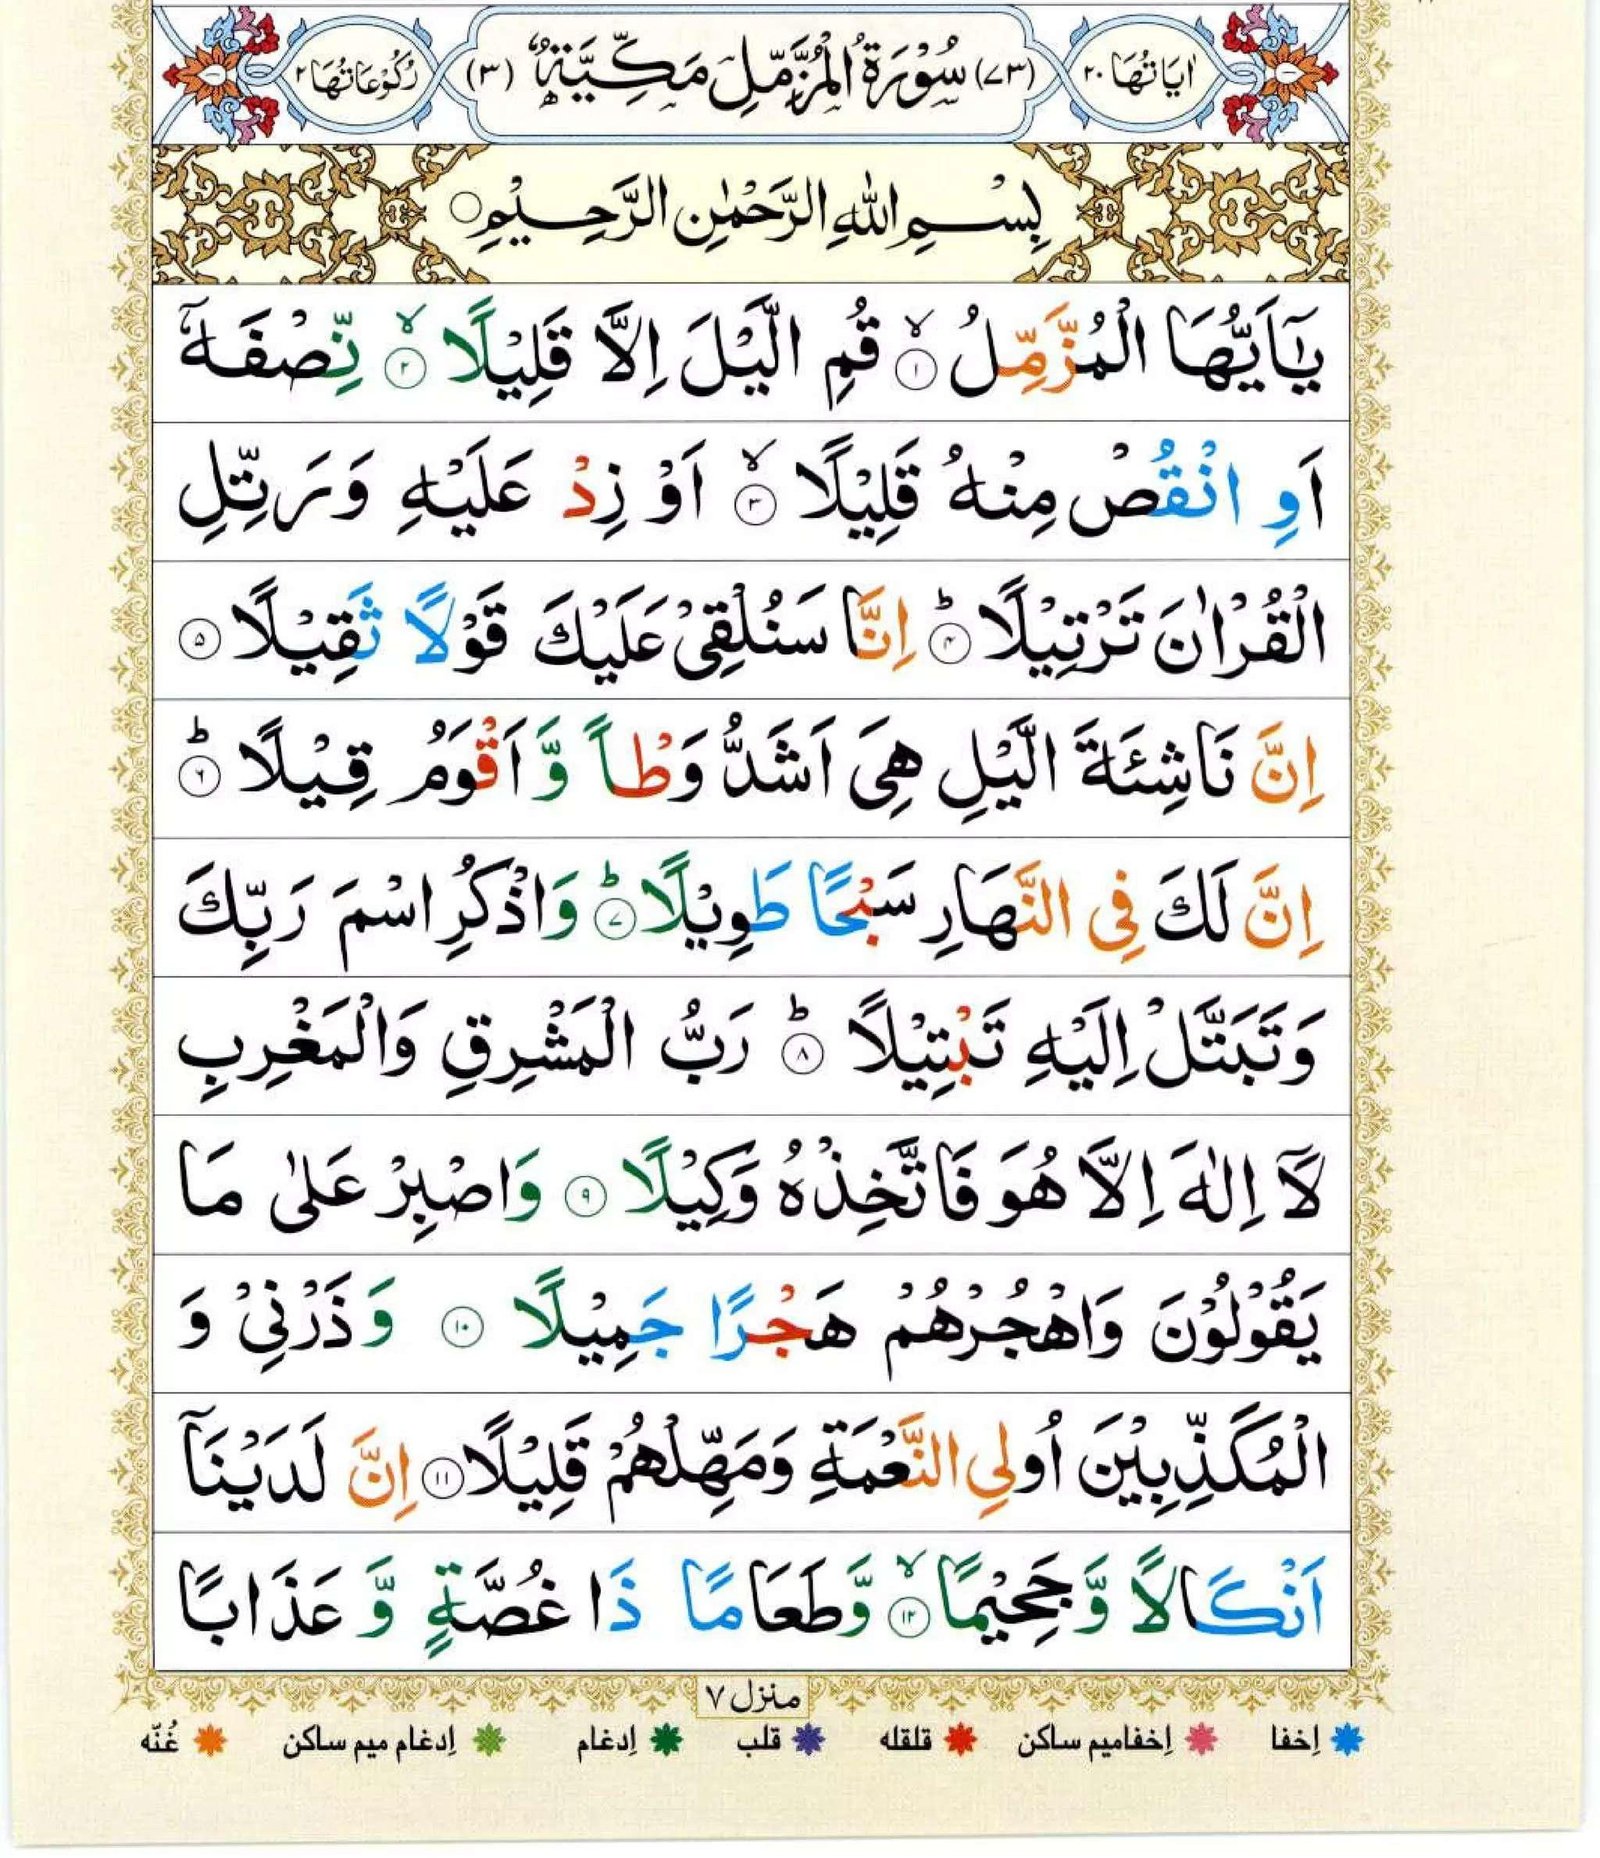 اٰيَاتُهَا ٢٠ (٧٣) سُوْرَةُ الْمُزَّمِّلِ مَكِّيَّةٌ (٣) رُكُوْعَاتُهَا ٢
بِسْمِ اللّٰهِ الرَّحْمٰنِ الرَّحِيْمِ ○
يٰٓاَيُّهَا الْمُزَّمِّلُ ۙ﴿۱﴾ قُمِ الَّيْلَ اِلَّا قَلِيْلًا ۙ﴿۲﴾ نِّصْفَهٗٓ
اَوِ انْقُصْ مِنْهُ قَلِيْلًا ۙ﴿۳﴾ اَوْ زِدْ عَلَيْهِ وَرَتِّلِ
الْقُرْاٰنَ تَرْتِيْلًا ؕ﴿۴﴾ اِنَّا سَنُلْقِيْ عَلَيْكَ قَوْلًا ثَقِيْلًا ﴿۵﴾
اِنَّ نَاشِئَةَ الَّيْلِ هِيَ اَشَدُّ وَطْاً وَّ اَقْوَمُ قِيْلًا ؕ﴿۶﴾
اِنَّ لَكَ فِي النَّهَارِ سَبْحًا طَوِيْلًا ؕ﴿۷﴾ وَاذْكُرِ اسْمَ رَبِّكَ
وَتَبَتَّلْ اِلَيْهِ تَبْتِيْلًا ؕ﴿۸﴾ رَبُّ الْمَشْرِقِ وَالْمَغْرِبِ
لَآ اِلٰهَ اِلَّا هُوَ فَاتَّخِذْهُ وَكِيْلًا ﴿۹﴾ وَاصْبِرْ عَلٰى مَا
يَقُوْلُوْنَ وَاهْجُرْهُمْ هَجْرًا جَمِيْلًا ﴿۱۰﴾ وَذَرْنِيْ وَ
الْمُكَذِّبِيْنَ اُولِي النَّعْمَةِ وَمَهِّلْهُمْ قَلِيْلًا ﴿۱۱﴾ اِنَّ لَدَيْنَآ
اَنْكَالًا وَّجَحِيْمًا ۙ﴿۱۲﴾ وَّطَعَامًا ذَا غُصَّةٍ وَّ عَذَابًا
منزل ٧
اِخفا اِخفامیم ساکن قلقله قلب اِدغام اِدغام میم ساکن غُنّه